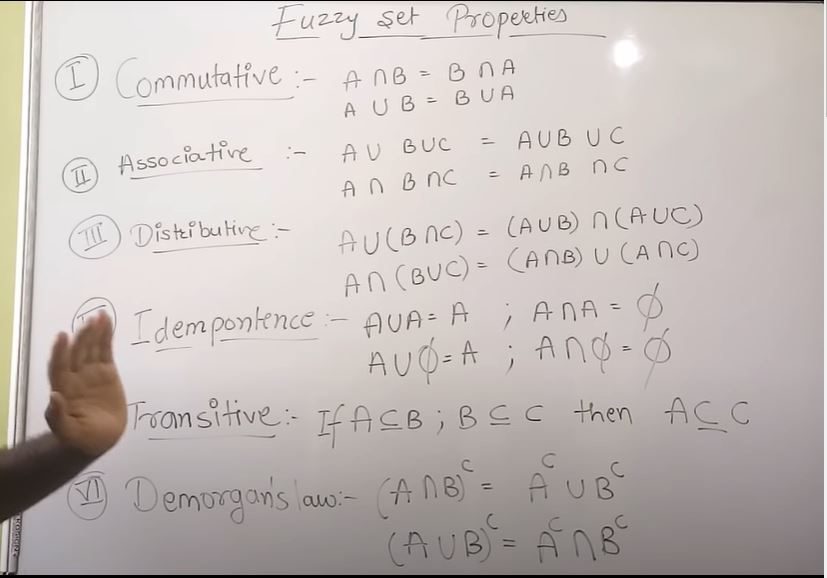 Fuzzy set Properties
I Commutative :- A ∩ B = B ∩ A
A ∪ B = B ∪ A
II Associative :- A ∪ B ∪ C = A ∪ B ∪ C
A ∩ B ∩ C = A ∩ B ∩ C
III Distributive :- A ∪ (B ∩ C) = (A ∪ B) ∩ (A ∪ C)
A ∩ (B ∪ C) = (A ∩ B) ∪ (A ∩ C)
Idempontence :- A ∪ A = A ; A ∩ A = ϕ
A ∪ ϕ = A ; A ∩ ϕ = ϕ
Transitive :- If A ⊆ B ; B ⊆ C then A ⊆ C
VI Demorgan's law :- (A ∩ B)ᶜ = Aᶜ ∪ Bᶜ
(A ∪ B)ᶜ = Aᶜ ∩ Bᶜ